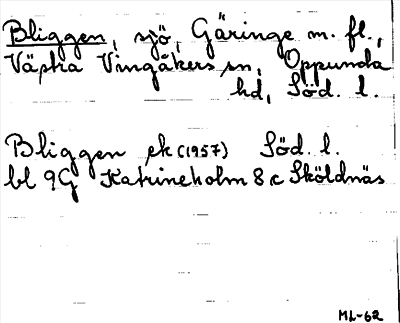 Bliggen, sjö, Gäringe m. fl.,
Västra Vingåkers sn, Oppunda
hd, Söd. l.
Bliggen ek (1957) Söd. l.
bl 9G Katrineholm 8 c Sköldnäs
ML-62